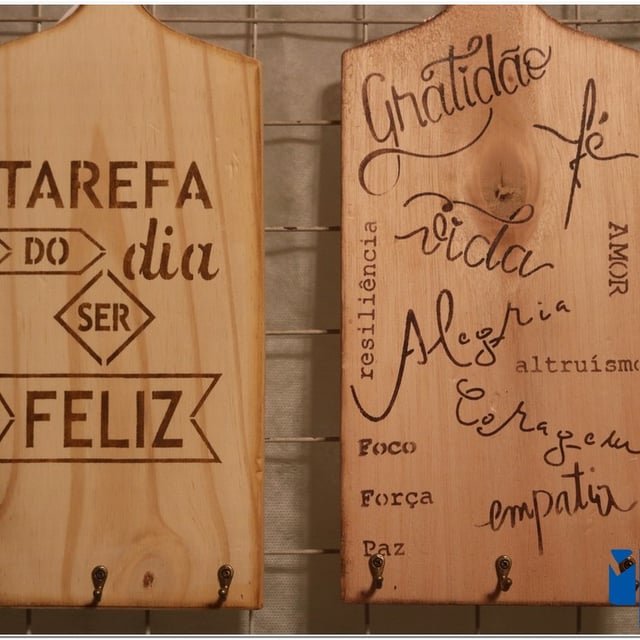 TAREFA
DO dia
SER
FELIZ
Gratidão
fé
vida
resiliência
AMOR
Alegria
altruísmo
Coragem
Foco
Força
empatia
Paz